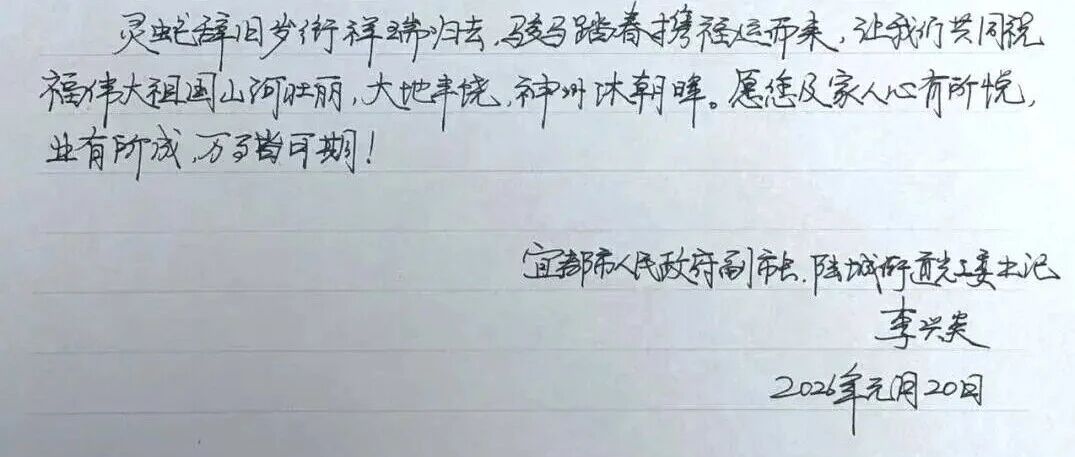 灵蛇辞旧岁衔祥瑞归去,骏马踏春携福运而来,让我们共同祝
福伟大祖国山河壮丽,大地丰饶,神州沐朝晖。愿您及家人心有所悦,
业有所成,万事皆可期!
宜都市人民政府副市长、陆城街道党工委书记
李兴炎
2026年元月20日